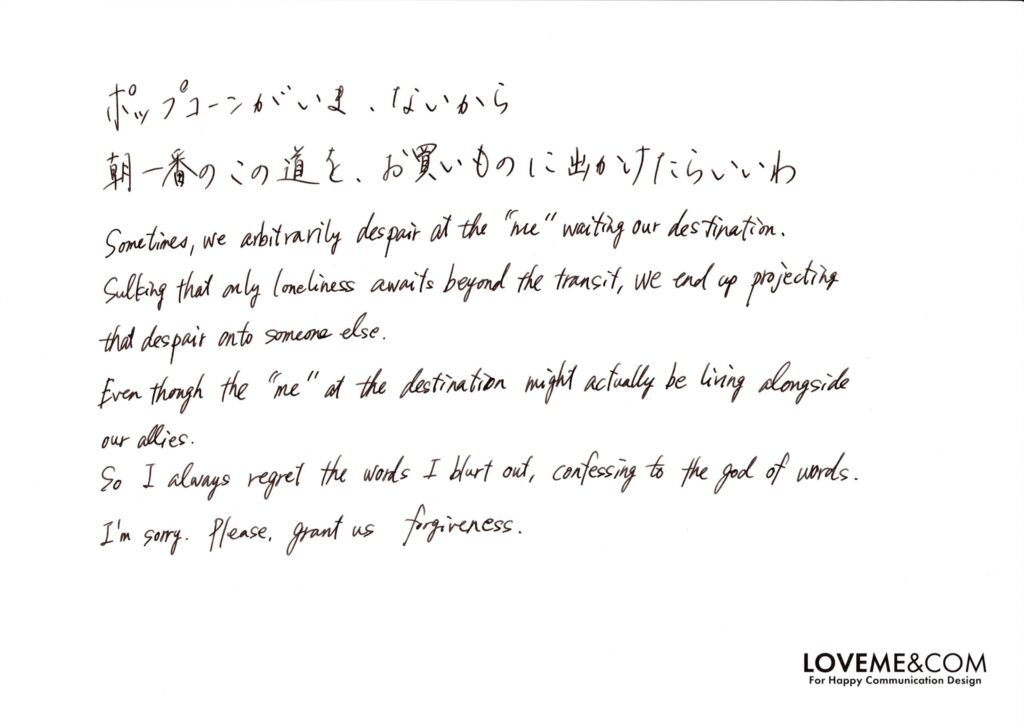 ポップコーンがいま、ないから
朝一番のこの道を、お買いものに出かけたらいいわ
Sometimes, we arbitrarily despair at the "me" waiting our destination.
Sulking that only loneliness awaits beyond the transit, we end up projecting
that despair onto someone else.
Even though the "me" at the destination might actually be living alongside
our allies.
So I always regret the words I blurt out, confessing to the god of words.
I'm sorry. Please, grant us forgiveness.
LOVEME&COM
For Happy Communication Design